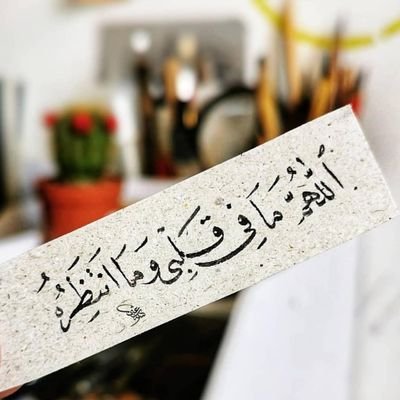 اَللّٰهُمَّ مَا فِي قَلْبِي وَمَا اَنْتَظِرُهُ